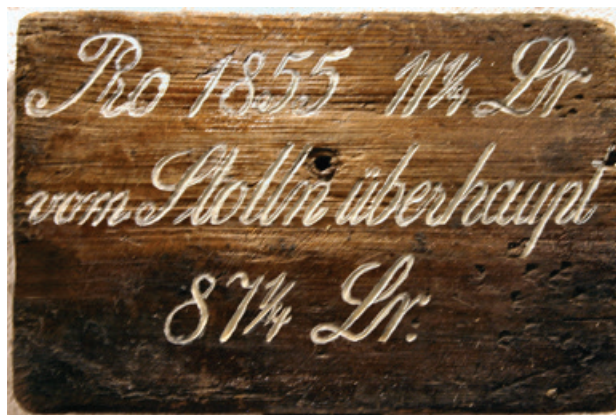 Pro 1855 11¼ Lr
vom Stolln überhaupt
87¼ Lr.